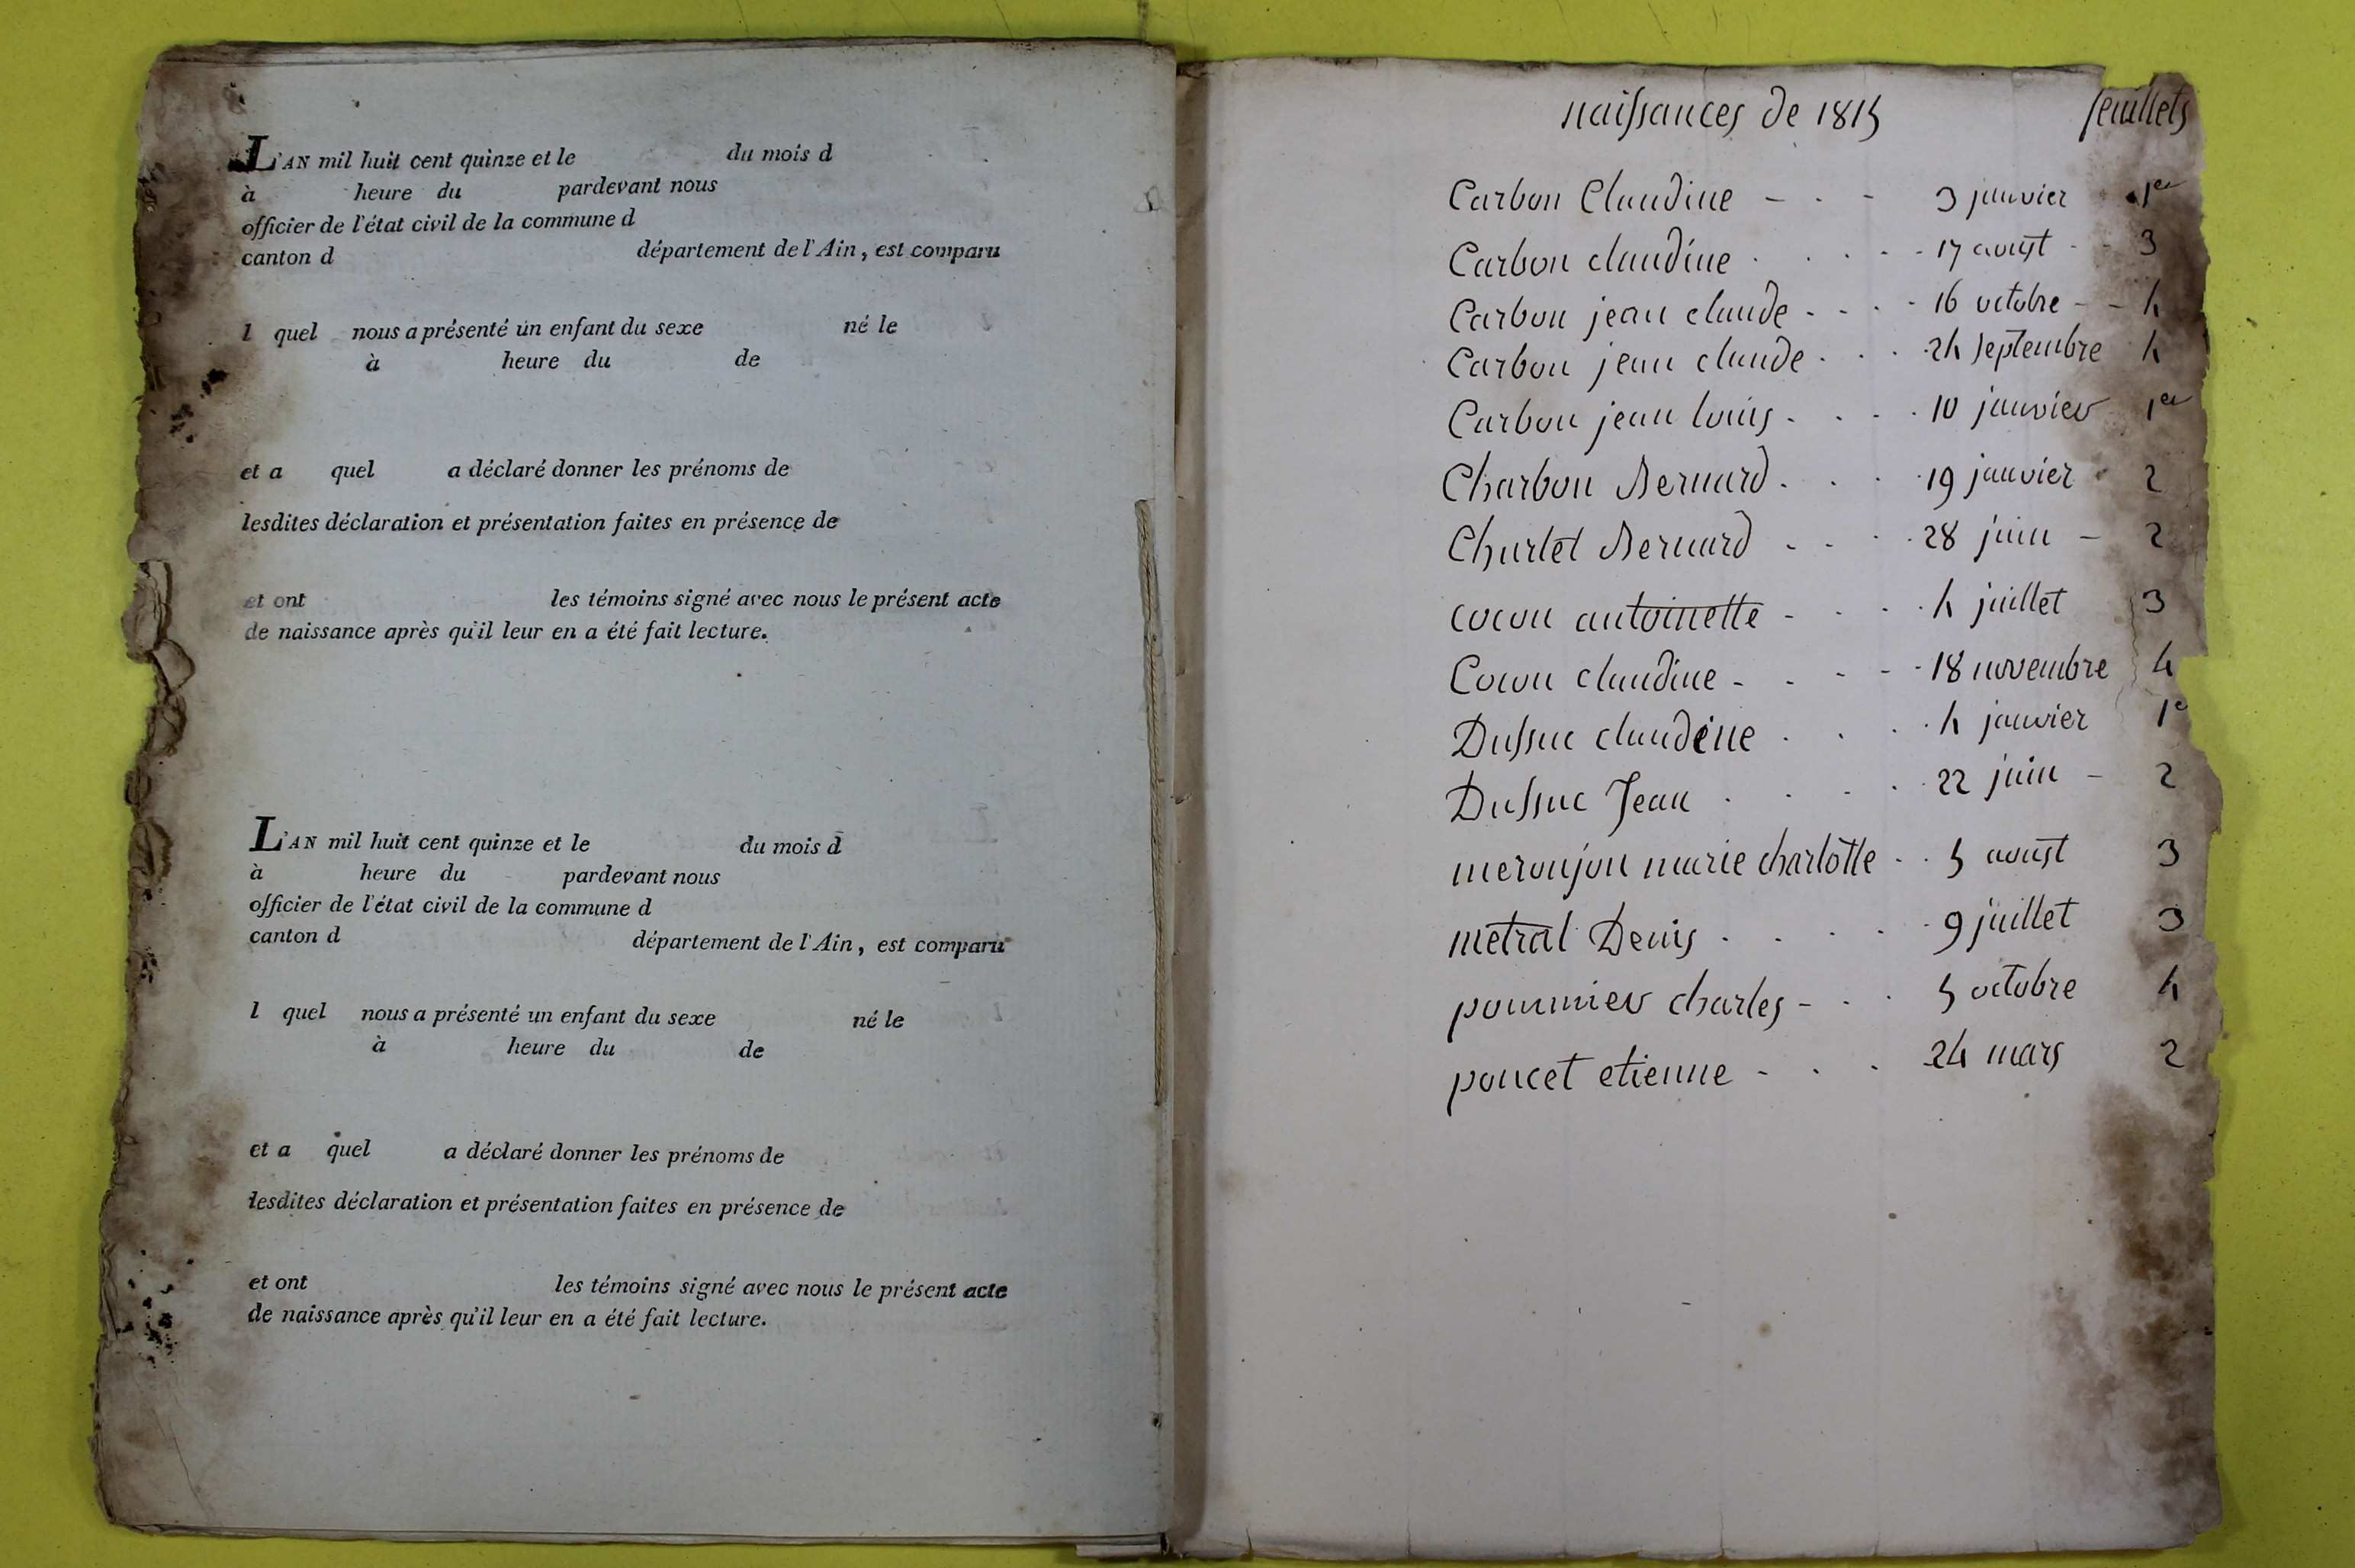 L'AN mil huit cent quinze et le du mois d
à heure du pardevant nous
officier de l'état civil de la commune d
canton d département de l'Ain, est comparu
l quel nous a présenté un enfant du sexe né le
à heure du de
et a quel a déclaré donner les prénoms de
lesdites déclaration et présentation faites en présence de
et ont les témoins signé avec nous le présent acte
de naissance après qu'il leur en a été fait lecture.
L'AN mil huit cent quinze et le du mois d
à heure du pardevant nous
officier de l'état civil de la commune d
canton d département de l'Ain, est comparu
l quel nous a présenté un enfant du sexe né le
à heure du de
et a quel a déclaré donner les prénoms de
lesdites déclaration et présentation faites en présence de
et ont les témoins signé avec nous le présent acte
de naissance après qu'il leur en a été fait lecture.
naissances de 1815 feuillets
Carbon Claudine - - - 3 janvier 1er
Carbon claudine - - - - 17 aoust - - 3
Carbon jean claude - - - - 16 octobre - - 4
Carbon jean claude - - - 24 septembre 4
Carbon jean louis - - - - 10 janvier 1er
Charbon Bernard - - - 19 janvier 2
Charlet Bernard - - - 28 juin - 2
cocon antoinette - - - - 4 juillet 3
Cocon claudine - - - - 18 novembre 4
Dussuc claudine - - - - 4 janvier 1er
Dussuc Jean - - - - 22 juin - 2
meronjon marie charlotte - - 5 aoust 3
metral Denis - - - - 9 juillet 3
pommier charles - - - 5 octobre 4
poncet etienne - - - 24 mars 2